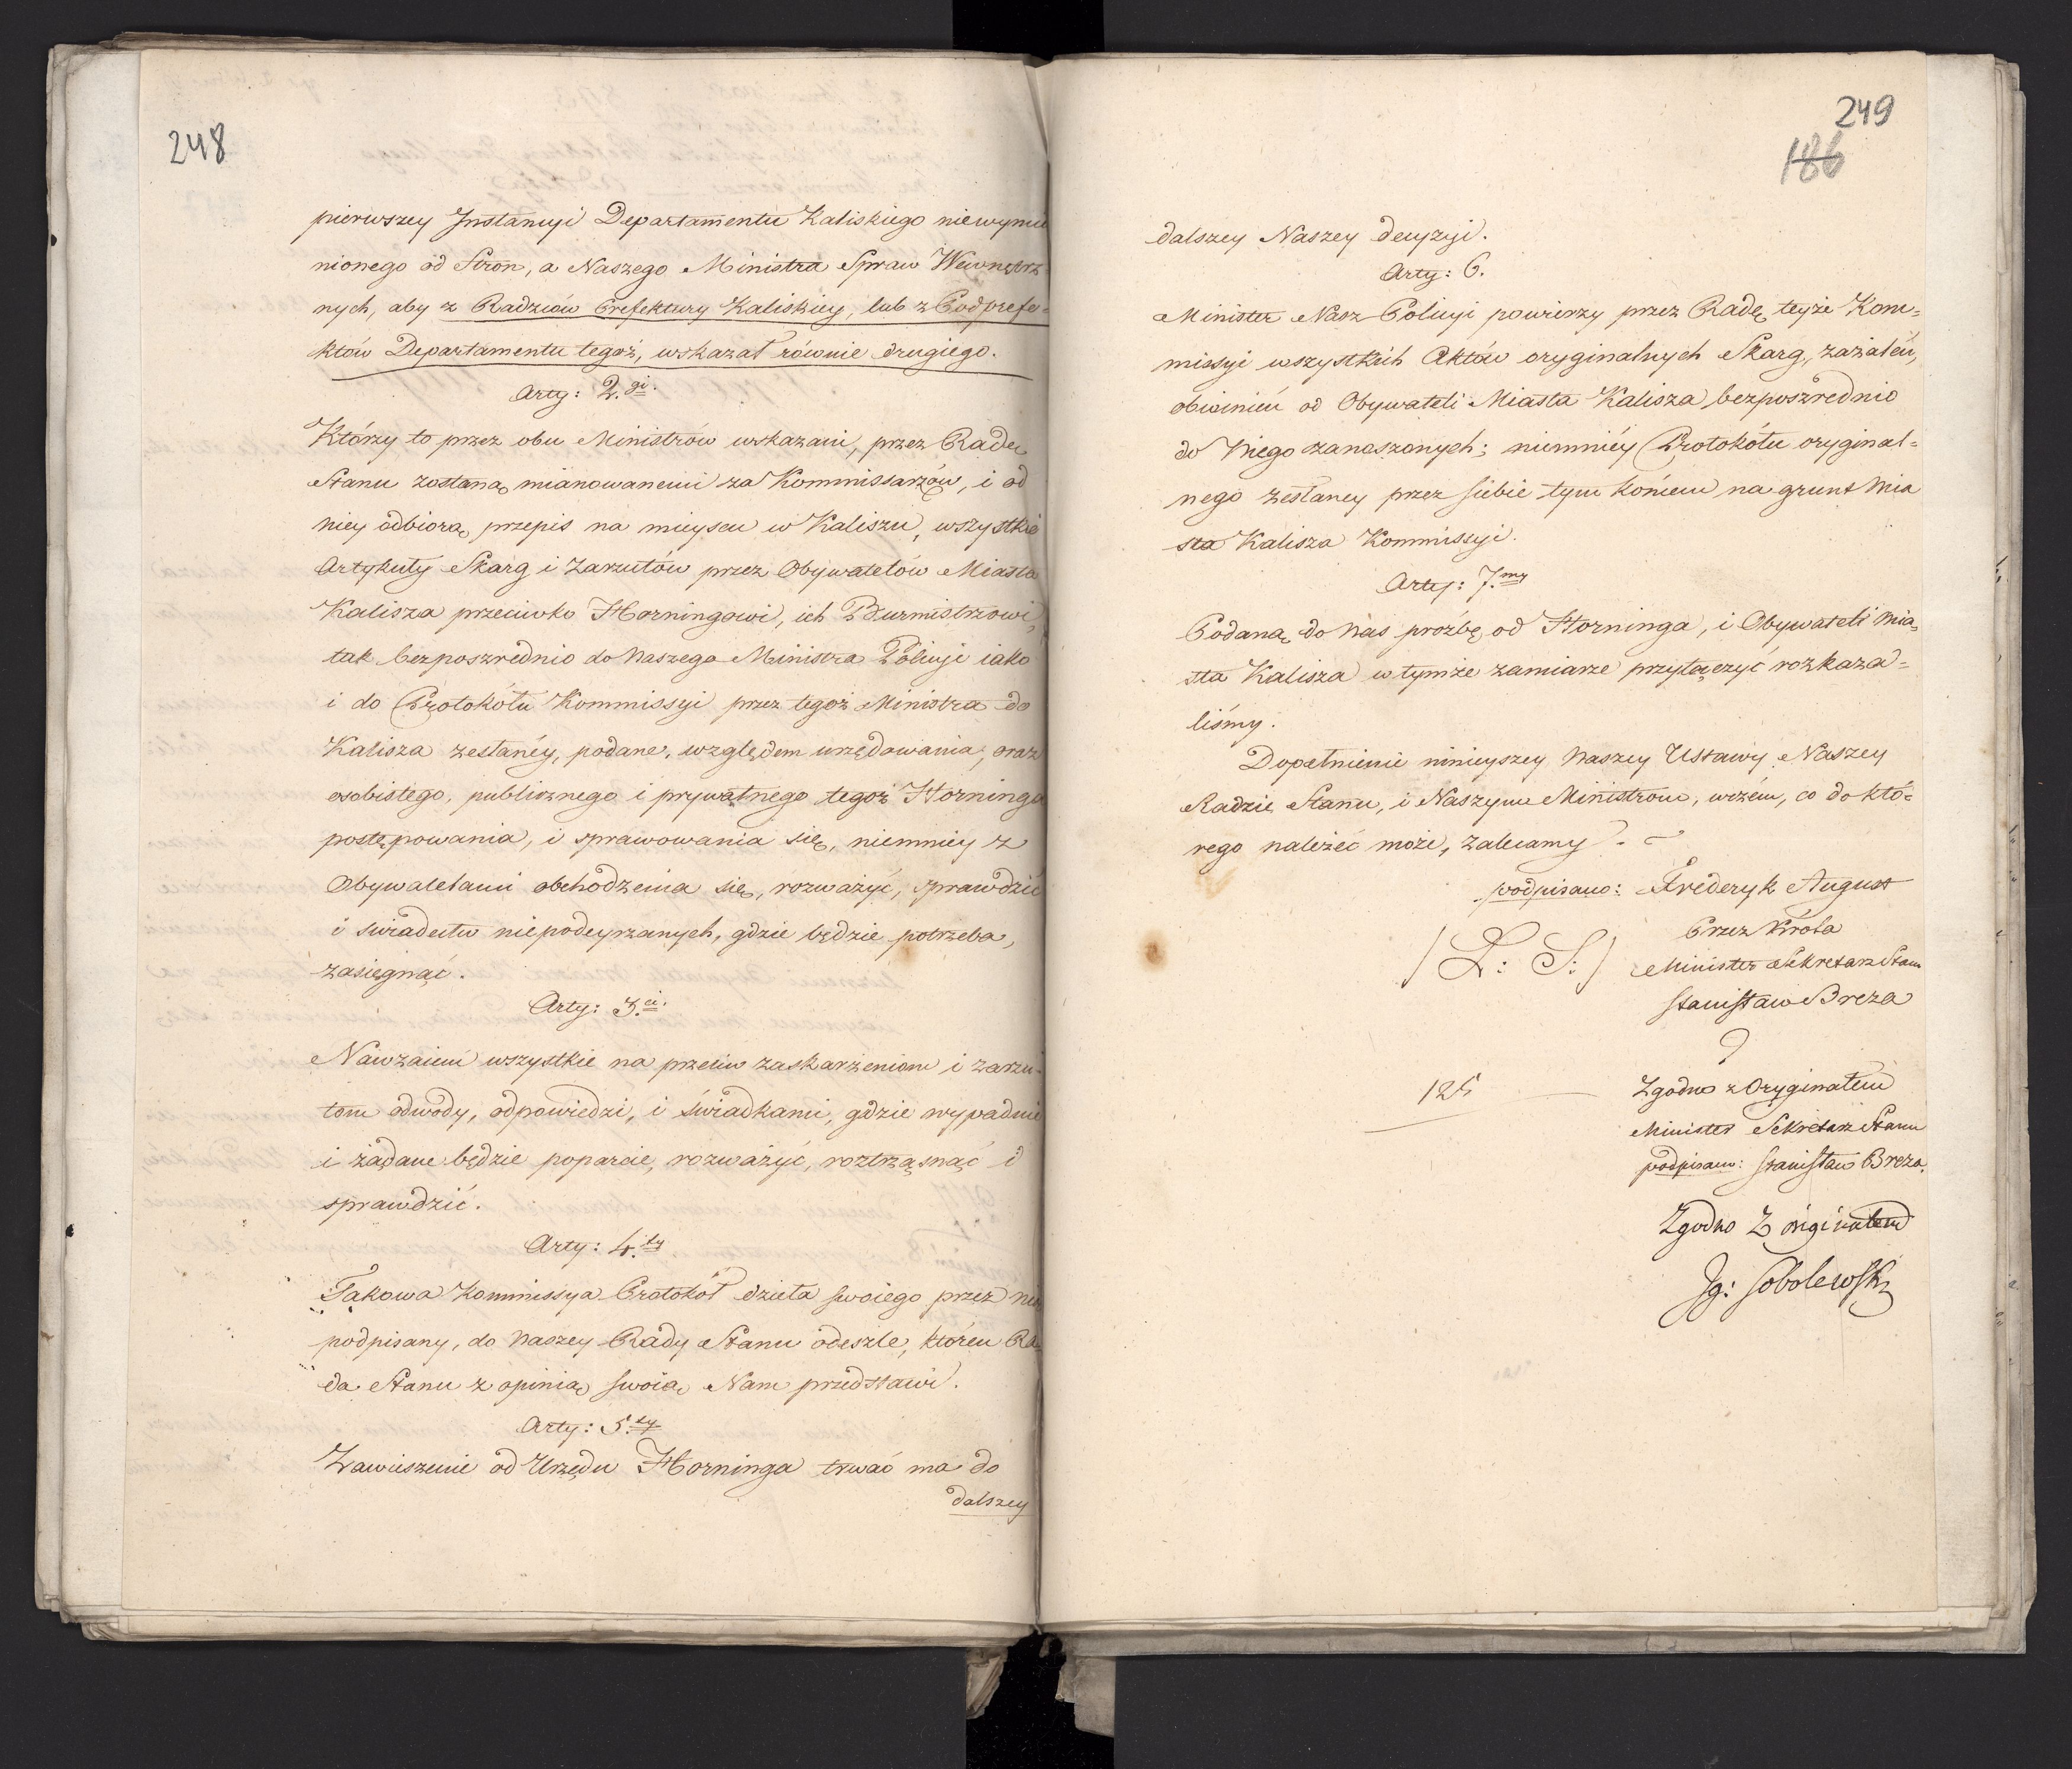 248
pierwszey Instancyi Departamentu Kaliskiego niewymie
nionego od Stron, a Naszego Ministra Spraw Wewnętrz
nych, aby z Radzców Prefektury Kaliskiey, lub z Podprefe=
któw Departamentu tegoż, wskazał równie drugiego.
Arty: 2.gi.
Którzy to przez obu Ministrów wskazani, przez Radę
Stanu zostaną mianowanemi za Kommissarzów, i od
niey odbiorą przepis na mieyscu w Kaliszu, wszystkie
Artykuły Skarg i zarzutów przez Obywatelów Miasta
Kalisza przeciwko Horningowi, ich Burmistrzowi,
tak bezposzrednio do Naszego Ministra Policyi iako
i do Protokółu Kommissyi przez tegoż Ministra do
Kalisza zesłanéy, podane, względem urzędowania, oraz
osobistego, publicznego i prywatnego tegoż Horninga
postępowania, i sprawowania się, niemniey z
Obywatelami obchodzenia się, rozważyć, sprawdzić
i swiadectw niepodeyrzanych, gdzie będzie potrzeba,
zasięgnąć.
Arty: 3.ci.
Nawzaiem wszystkie na przeciw zaskarżeniom i zarzu-
tom odwody, odpowiedzi, i świadkami, gdzie wypadnie
i żądane będzie poparcie, rozważyć, roztrząsnąć i
sprawdzić.
Arty: 4.ty
Takowa Kommissya Protokół dzieła swoiego przez nią
podpisany, do Naszey Rady Stanu odeszle, któren Ra
da Stanu z opinią swoią Nam przedstawi.
Arty: 5.ty
Zawieszenie od Urzędu Horninga trwać ma do
dalszey
249
186
dalszey Naszey decyzyi.
Arty: 6.
Minister Nasz Policyi powierzy przez Radę teyże Kom=
missyi wszystkich Aktów oryginalnych Skarg, zażaleń,
obwinień od Obywateli Miasta Kalisza bezposzrednio
do Niego zanoszonych; niemniéy Protokółu oryginal=
nego zesłaney przez siebie tym końcem na grunt Mia
sta Kalisza Kommissyi.
Arty: 7.my
Podaną do Nas proźbę od Horninga, i Obywateli Mia=
sta Kalisza w tymże zamiarze przyłączyć rozkaza=
liśmy.
Dopełnienie ninieyszey Naszey Ustawy Naszey
Radzie Stanu, i Naszym Ministrom, wczem, co do któ=
rego należeć może, zalecamy.
podpisano: Frederyk August
Przez Króla
/L: S:/ Minister Sekretarz Stanu
Stanisław Breza
125 Zgodno z Oryginałem
Minister Sekretarz Stanu
podpisano: Stanisław Breza.
Zgodno z originałem
Ig: Sobolewski